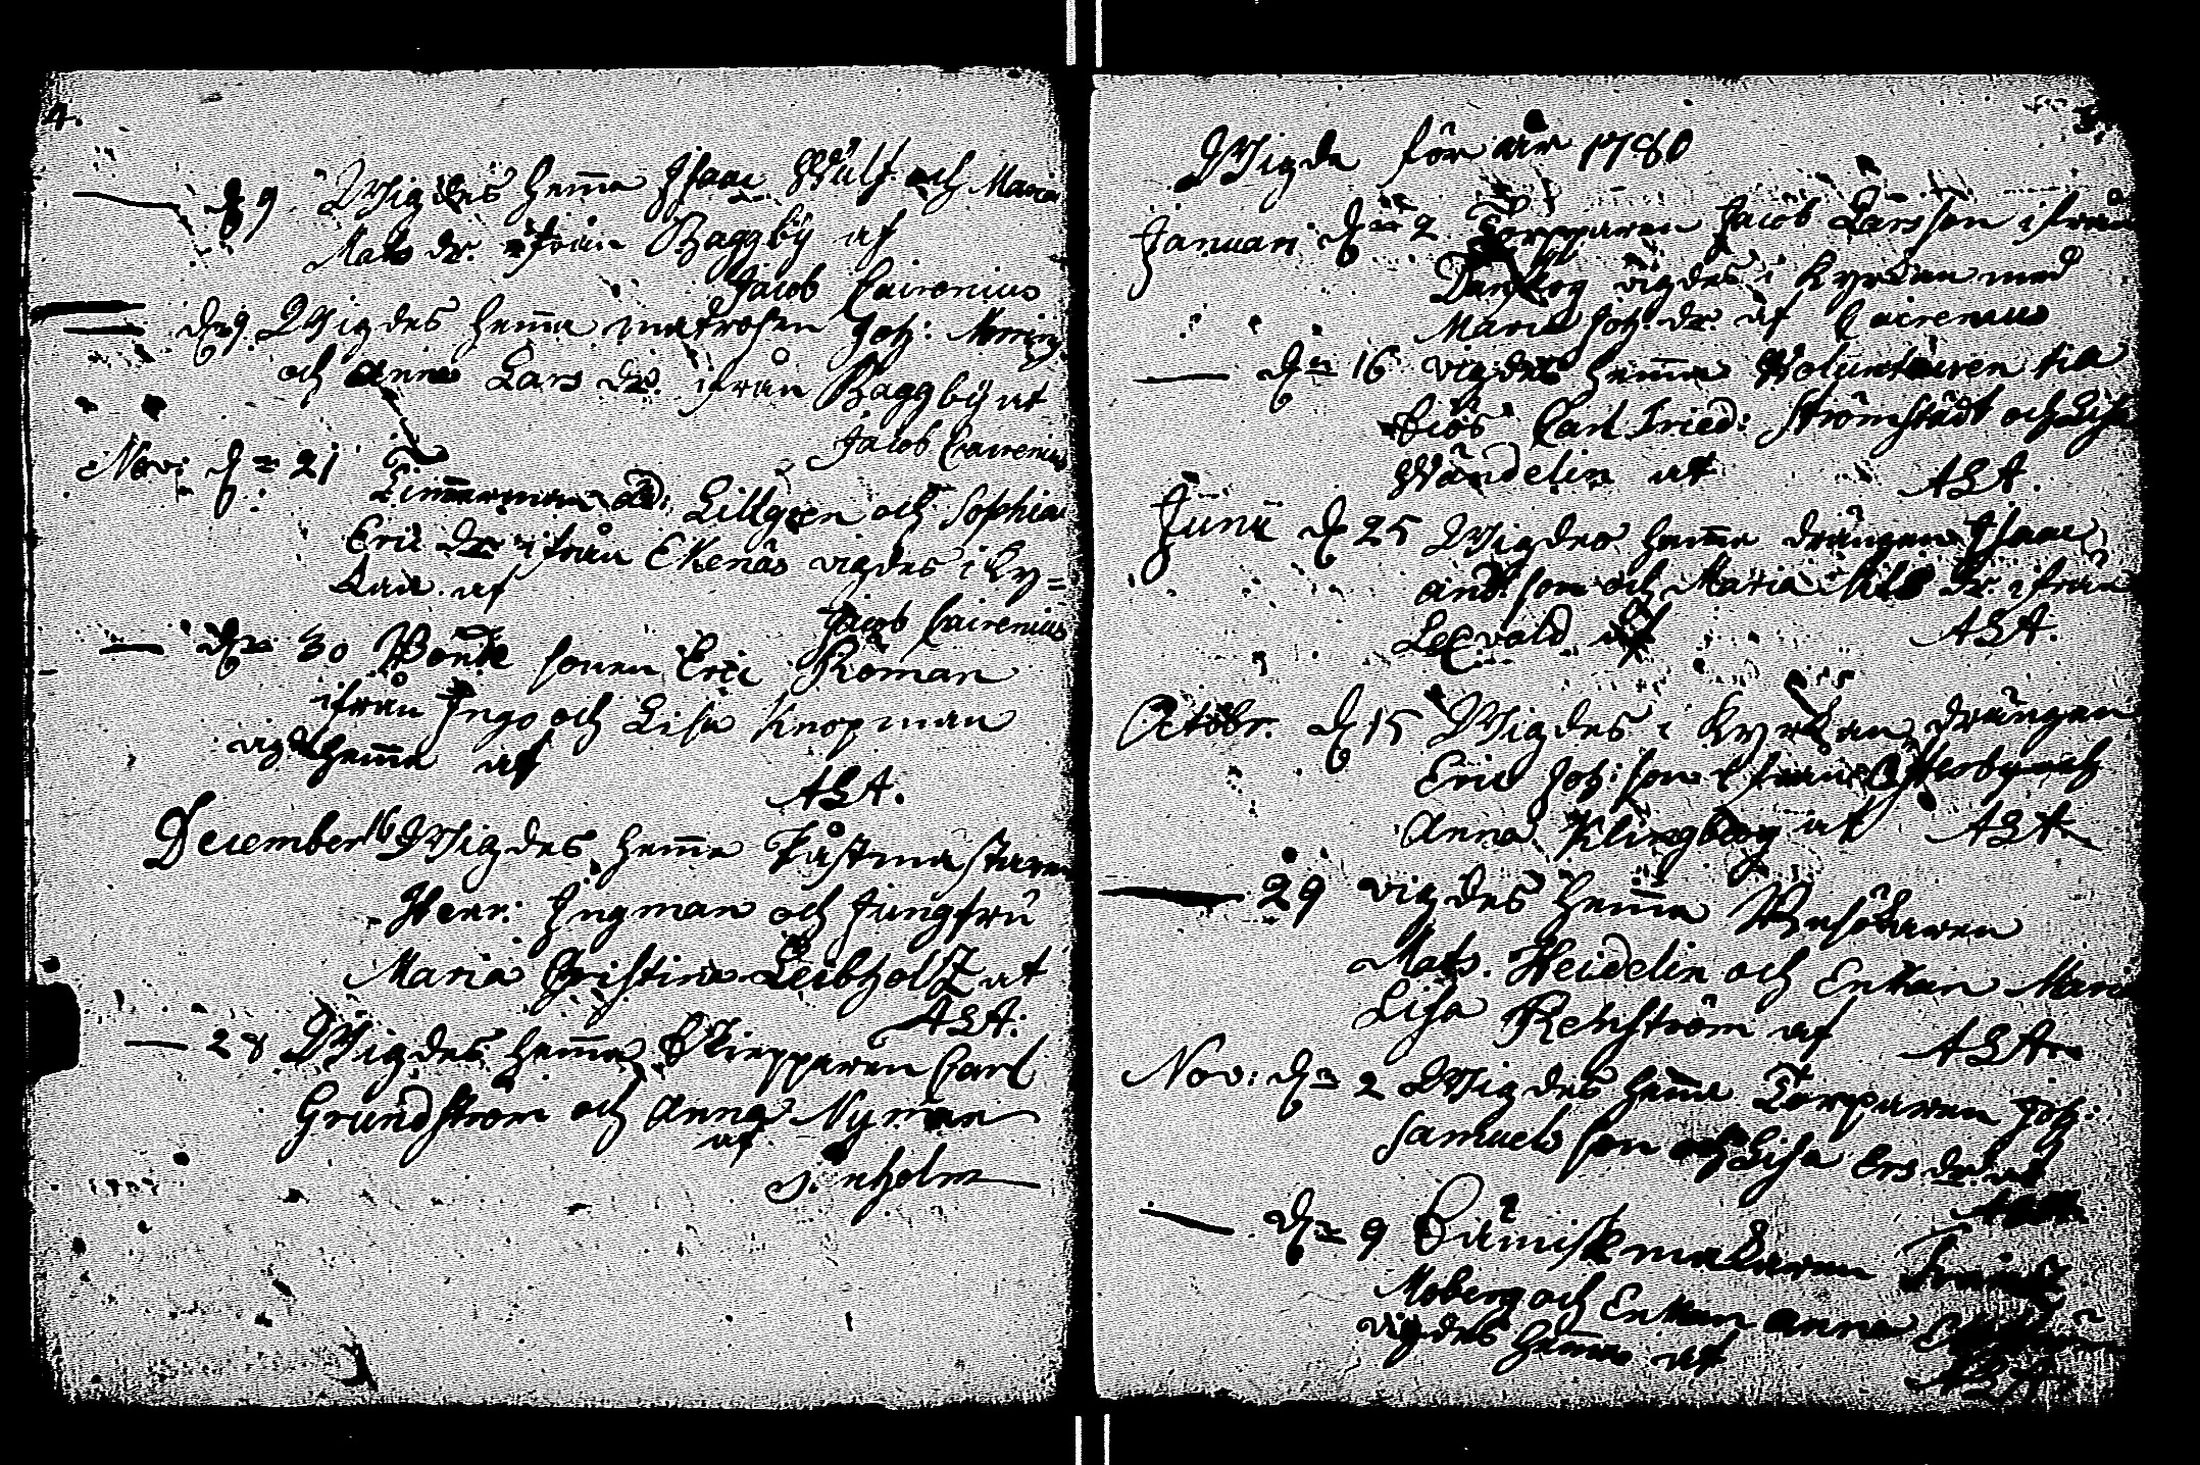 4.
d 9 Wigdes hem̅a Isaac Wulf och Maria
Mats dr. ifrån Baggby af
Jacob Cairenius
d 9 Wigdes hem̅a matrosen Joh:
och Anna Lars dr. ifrån Baggby af
Jacob Cairenius
Nov: d 21
Tim̅erman Lillgren och Sophia
Eric dr ifrån Ekenäs vigdes i Ky=
kan af
Jacob Cairenius
dn 30 Bonde sonen Eric Roman
ifrån Ingo och Lisa Knopman
vigd hem̅a af
ALA.
December 16 Wigdes hem̅a Påstmästaren
Herr: Ingman och Jungfru
Maria Christina Leibholtz af
ALA:
28 Wigdes hem̅a Skiepparen Carl
Grundström och Anna Nyman
af
Wigde för år 1780
Januari dn 2 Torpparen Jacob Larsson ifrån
Danskog vigdes i Kyrkan med
Maria Joh. dr. af Cairenius
dn 16 vigdes hem̅a Volunteuren til
Siös Carl Fried: Strömstädt och Lisa
Wändelin af ALA.
Junii d 25 Wigdes hem̅a drängen Isaac
And. son och Maria Nils dr. ifrån
Lexvald af ALA.
Octobr. d 15 Wigdes i Kyrkan drängen
Eric Joh: son ifrån Österby och
Anna Klingberg af ALA
29 vigdes hem̅a Besökaren
Mats. Heidelin och Enkan Maria
Lisa Rehström af ALA
Nov: dn 2 Wigdes hem̅a Torparen Joh:
Samuels son och Lisa Ers. dr. af
ALA
dn 9 makaren Frantz
Moberg och Enkan Anna
vigdes hem̅a af ALA